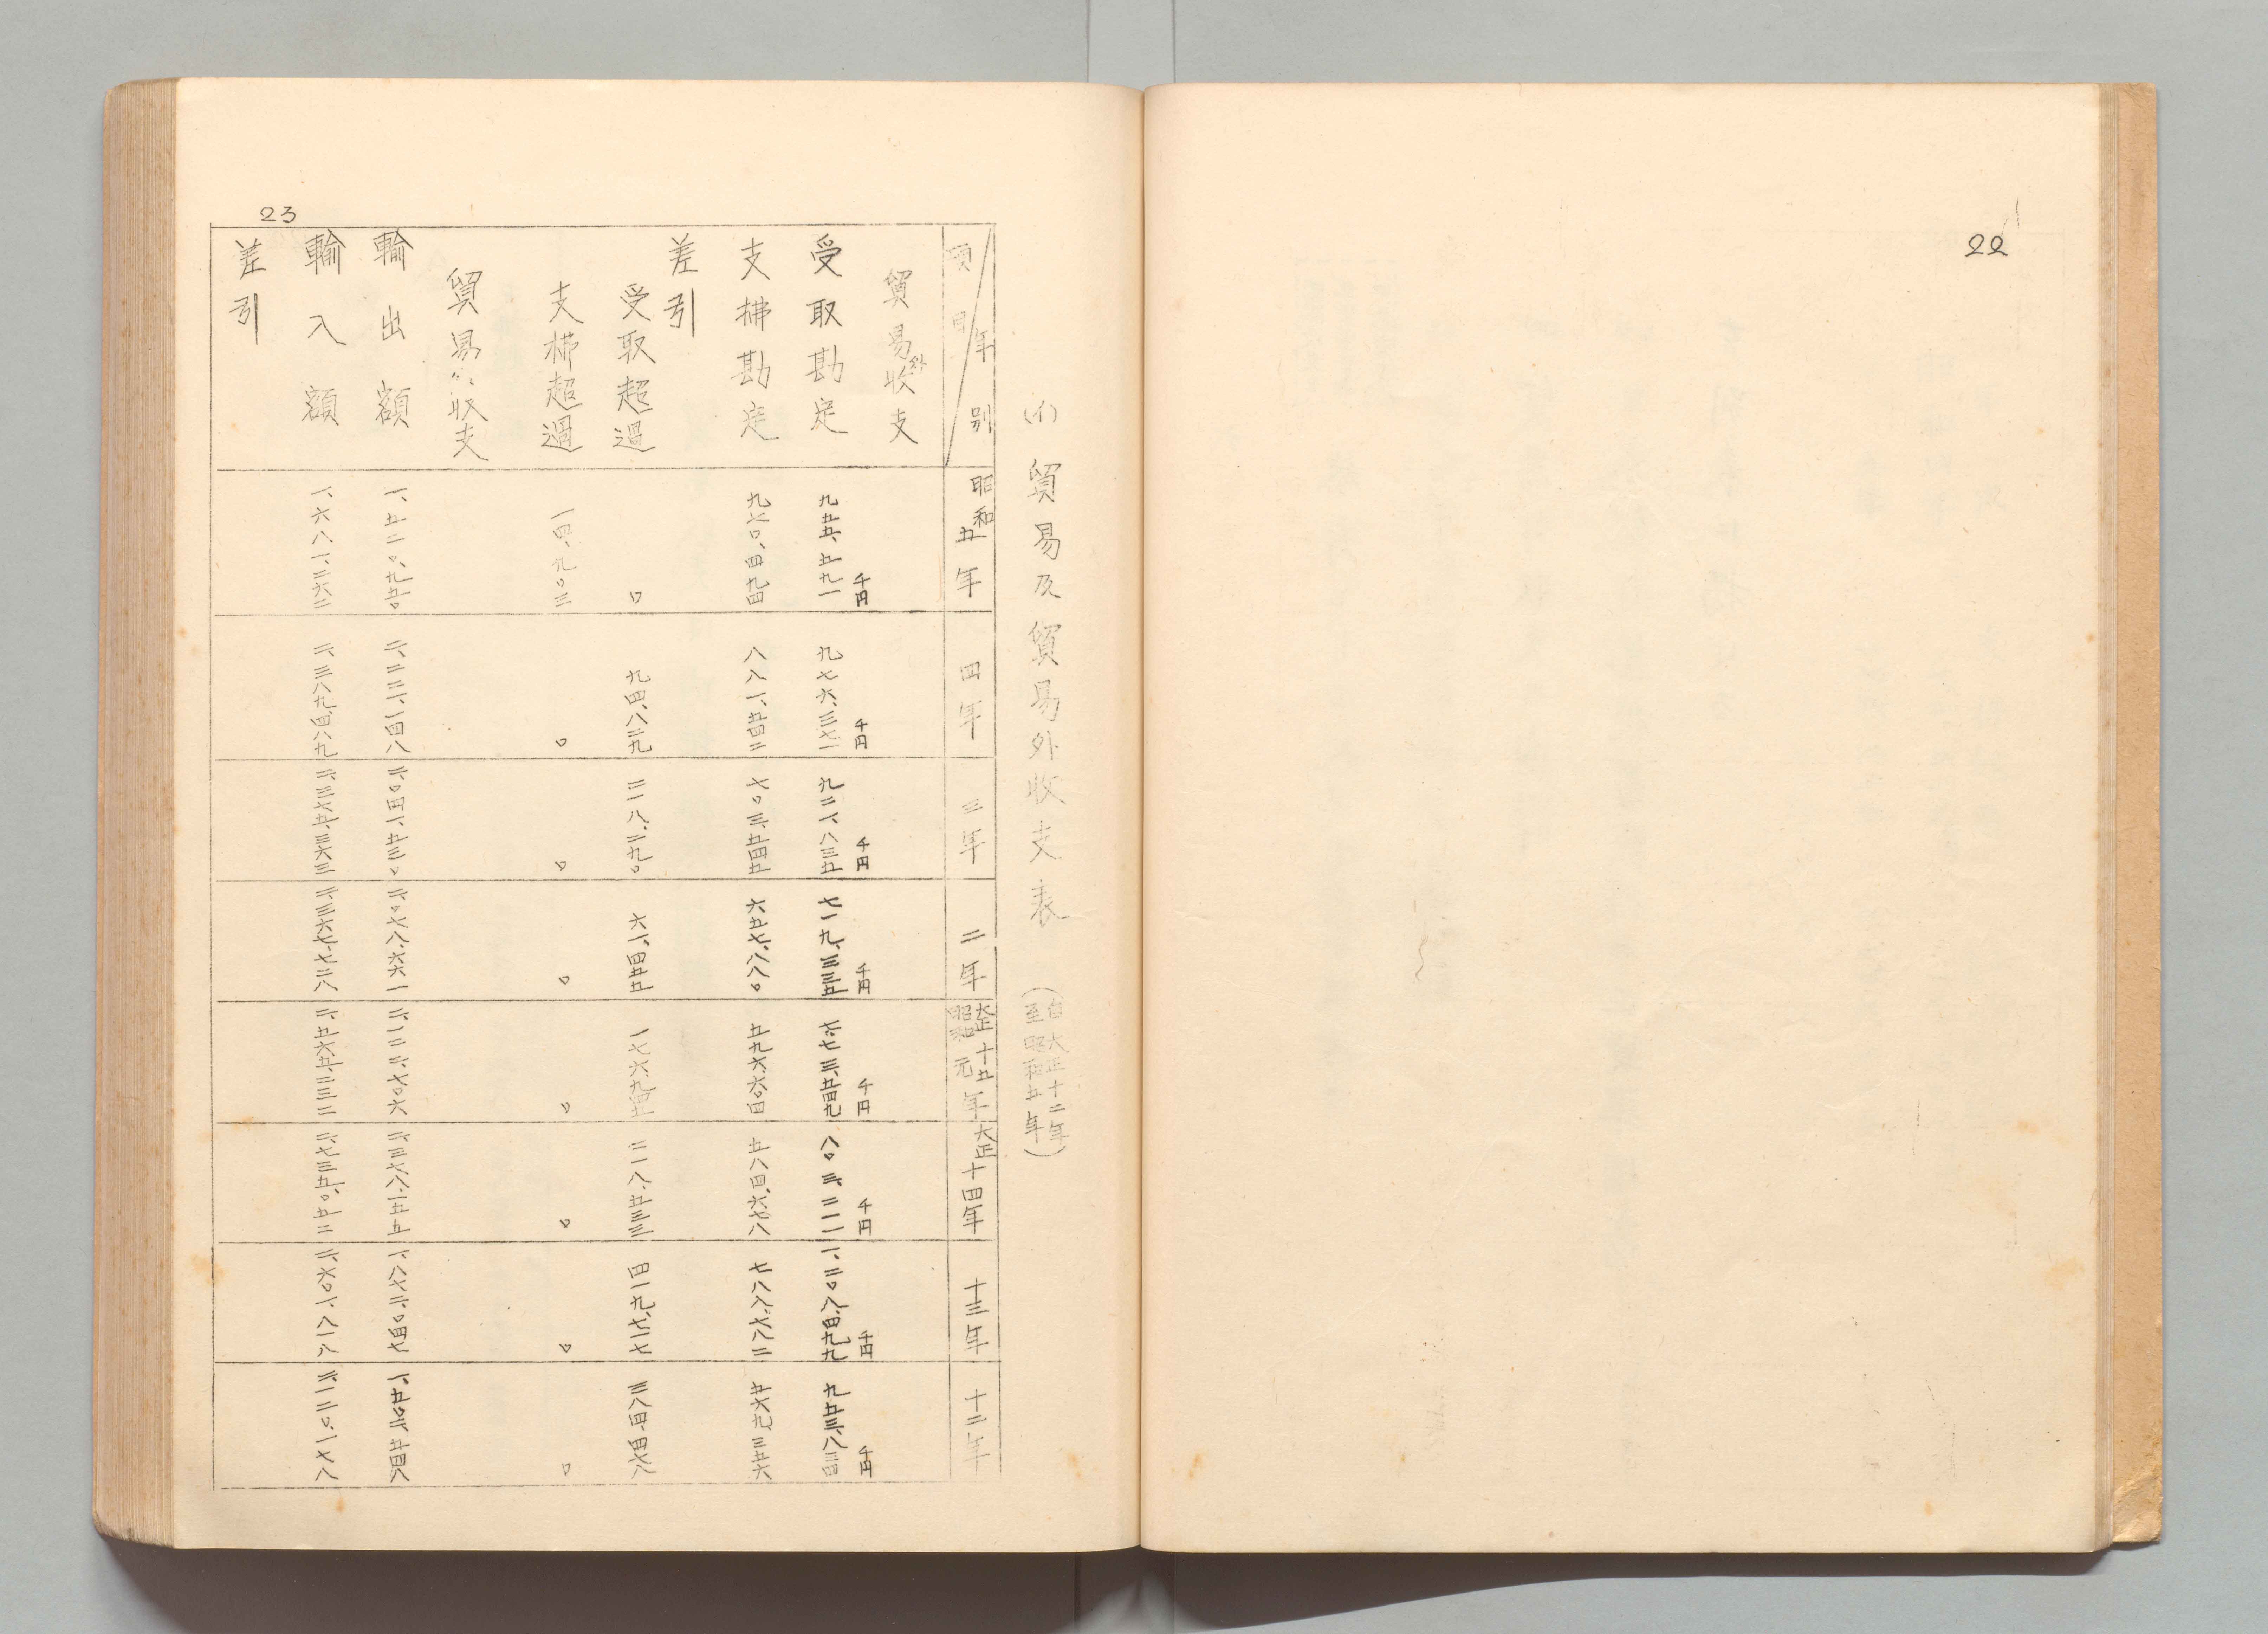 22
(イ) 貿易及貿易外收支表 (自大正十二年
至昭和五年)
項目 年別 昭和五年 四年 三年 二年 大正十五年 昭和元年 大正十四年 十三年 十二年
貿易外收支
千円 千円 千円 千円 千円 千円 千円 千円
受取勘定 九五五、五九一 九七六、三七一 九二一、八三五 七一九、三三五 七七三、五四九 八〇三、二一一 一、二〇八、四九九 九五三、八三四
支拂勘定 九七〇、四九四 八八一、五四二 七〇三、五四五 六五七、八八〇 五九六、六〇四 五八四、六七八 七八八、七八二 五六九、三五六
差引
受取超過 〇 九四、八二九 二一八、二九〇 六一、四五五 一七六、九四五 二一八、五三三 四一九、七一七 三八四、四七八
支拂超過 一四、九〇三 〇 〇 〇 〇 〇 〇 〇
貿易収支
輸出額 一、五二〇、九五〇 二、二二一、一四八 二、〇四一、五三〇 二、〇七八、六六一 二、一二二、七〇六 二、三七八、一五五 一、八七二、〇四七 一、五〇二、五四八
輸入額 一、六八一、二六二 二、三八九、四八九 二、三七五、三六三 二、三六七、七二八 二、五六五、三三二 二、七三五、〇五二 二、六〇一、八一八 二、一二〇、一七八
差引
23